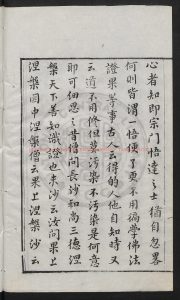 心者知即宗門悟達之士猶自忽畧
何則皆謂一悟便了更不用徧學佛法
證果等事古云得的人他自知時又
云道不用修但莫汚染不汚染是何意
耶可細思之昔僧問長沙和尚三德涅
槃天下善知識證也未沙云汝問果上
涅槃因中涅槃僧云果上涅槃沙云